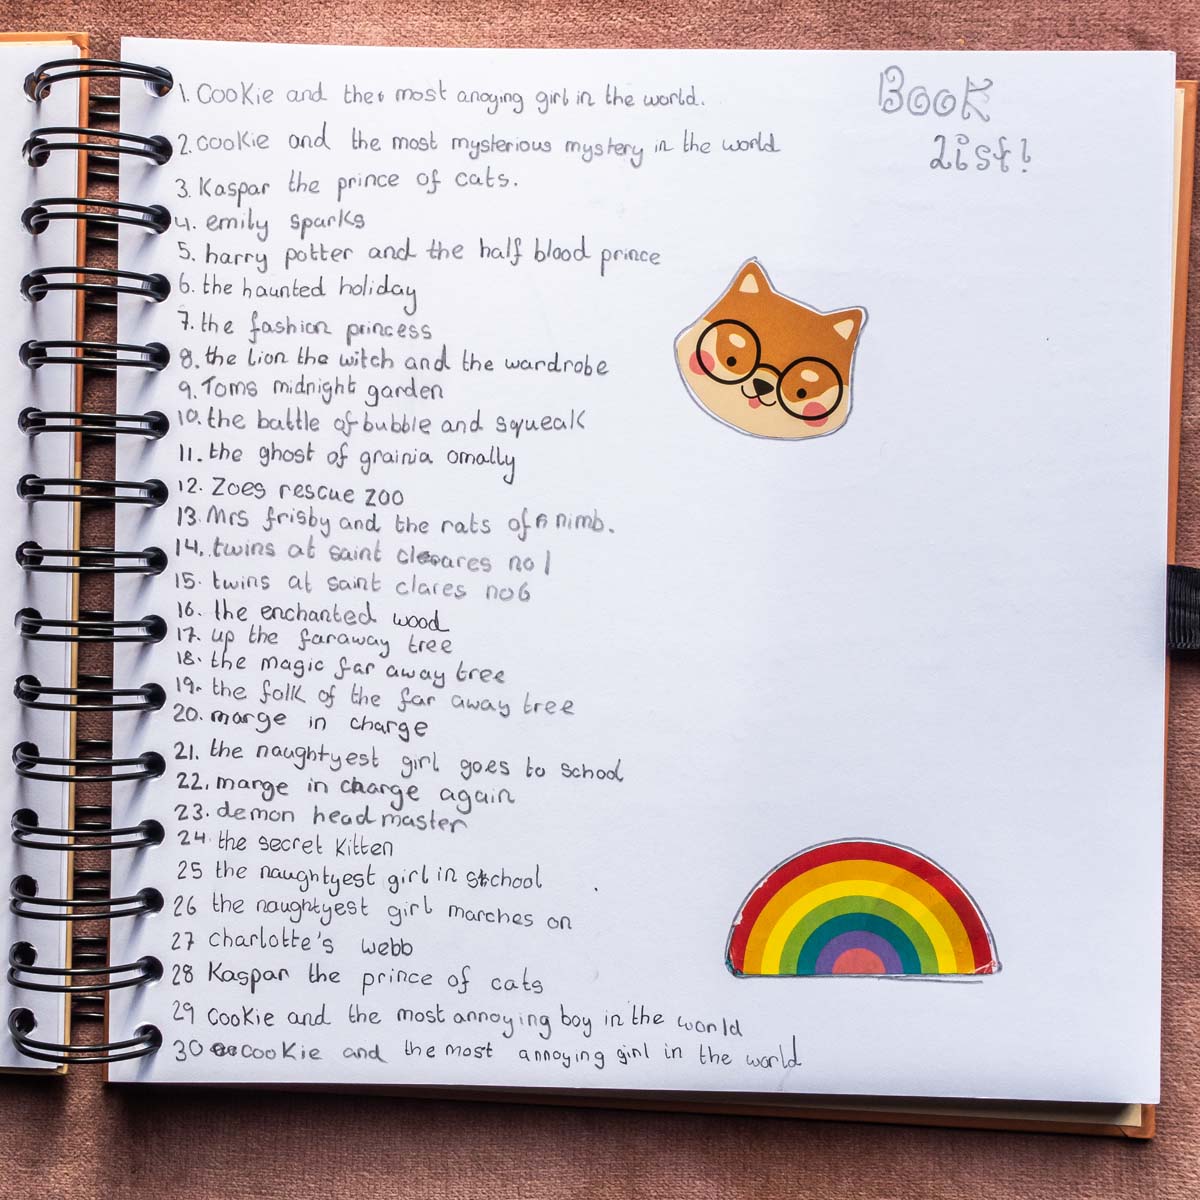 Book
List!
1. Cookie and the most anoying girl in the world.
2. cookie and the most mysterious mystery in the world
3. Kaspar the prince of cats.
4. emily sparks
5. harry potter and the half blood prince
6. the haunted holiday
7. the fashion princess
8. the lion the witch and the wardrobe
9. Toms midnight garden
10. the battle of bubble and squeak
11. the ghost of grainia omally
12. Zoes rescue zoo
13. Mrs frisby and the rats of nimb.
14. twins at saint clares no 1
15. twins at saint clares no6
16. the enchanted wood
17. up the faraway tree
18. the magic far away tree
19. the folk of the far away tree
20. marge in charge
21. the naughtyest girl goes to school
22. marge in charge again
23. demon head master
24 the secret kitten
25 the naughtyest girl in school
26 the naughtyest girl marches on
27 charlotte's webb
28 Kaspar the prince of cats
29 cookie and the most annoying boy in the world
30 cookie and the most annoying girl in the world